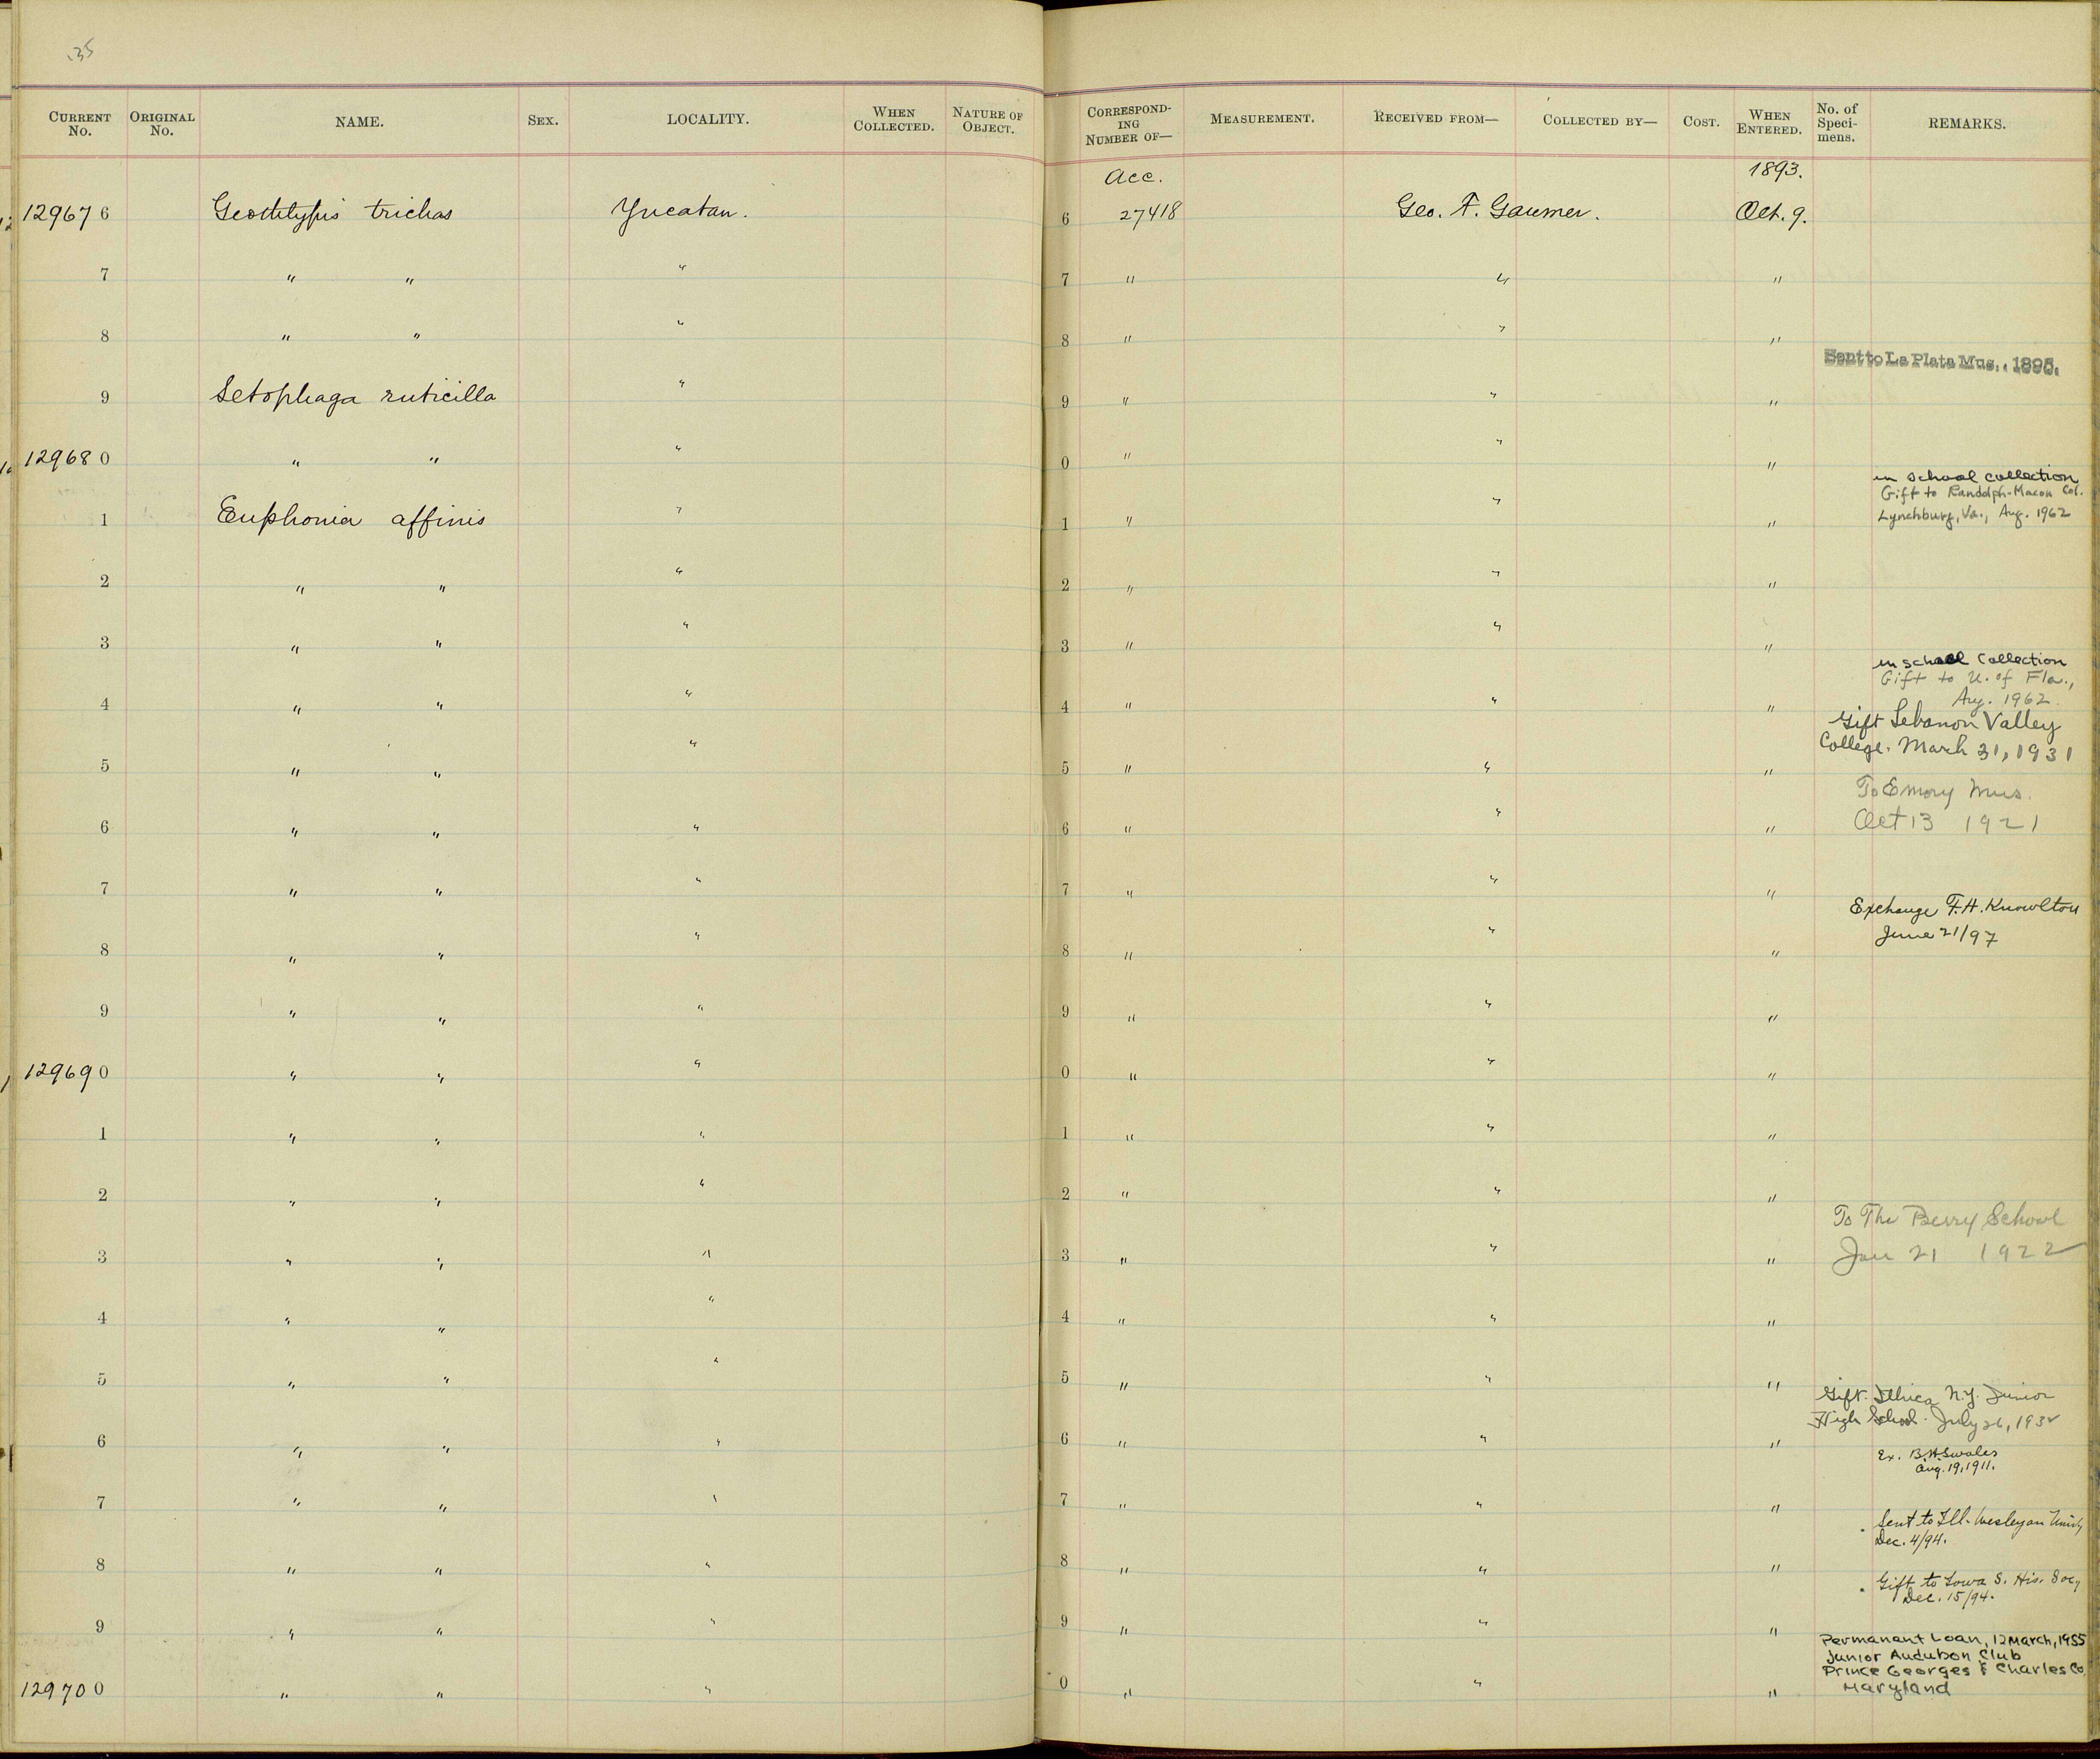 35
CURRENT No. ORIGINAL No. NAME. SEX. LOCALITY. WHEN COLLECTED. NATURE OF OBJECT. CORRESPONDING NUMBER OF— MEASUREMENT. RECEIVED FROM— COLLECTED BY— COST. WHEN ENTERED. No. of Specimens. REMARKS.
Acc. 1893.
129676 Geothlypis trichas Yucatan. 6 27418 Geo. F. Gaumer. Oct. 9.
7 " " " 7 " " "
8 " " " 8 " " "
Sent to La Plata Mus., 1895.
9 Setophaga ruticilla " 9 " " "
129680 " " " 0 " " "
in school collection
Gift to Randolph-Macon Col.
Lynchburg, Va., Aug. 1962
1 Euphonia affinis " 1 " " "
2 " " " 2 " " "
3 " " " 3 " " "
in school collection
Gift to U. of Fla.,
Aug. 1962
4 " " " 4 " " "
Gift Lebanon Valley
College. March 31, 1931
5 " " " 5 " " "
To Emory Mus.
Oct 13 1921
6 " " " 6 " " "
7 " " " 7 " " "
Exchange F. H. Knowlton
June 21/97
8 " " " 8 " " "
9 " " " 9 " " "
129690 " " " 0 " " "
1 " " " 1 " " "
2 " " " 2 " " "
To The Berry School
Jan 21 1922
3 " " " 3 " " "
4 " " " 4 " " "
5 " " " 5 " " "
Gift. Ithica N.Y. Junior
High School. July 26, 193
6 " " " 6 " " "
Ex. B.H. Swales
Aug. 19, 1911.
7 " " " 7 " " "
Sent to Ill. Wesleyan Univ'y
Dec. 4/94.
8 " " " 8 " " "
Gift to Iowa S. His. Soc'y
Dec. 15/94.
9 " " " 9 " " "
Permanant Loan, 12 March, 1955
Junior Audubon Club
Prince Georges & Charles Co.
Maryland
129700 " " " 0 " " "